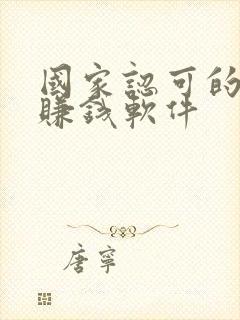 國家認可的
賺錢軟件
唐寧